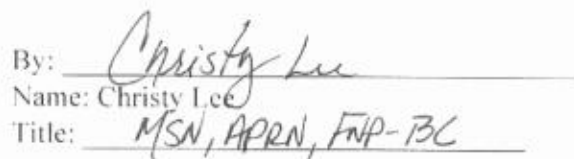 By: Christy Lee
Name: Christy Lee
Title: MSN, APRN, FNP-BC